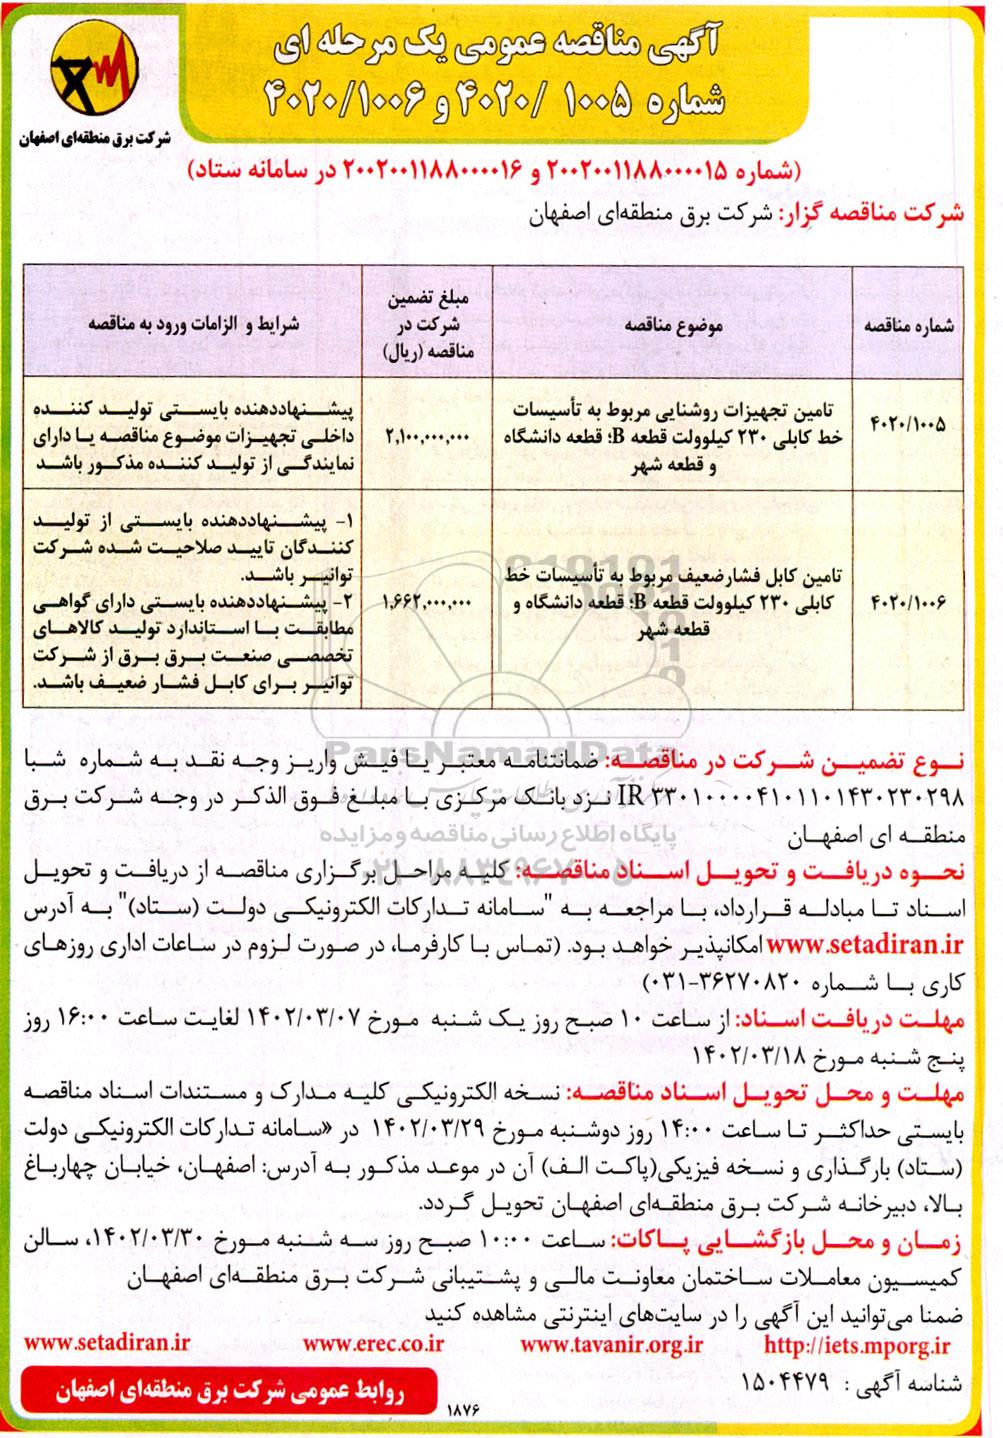 آگهی مناقصه عمومی یک مرحله ای
شماره ۱۰۰۵ /۴۰۲۰ و ۴۰۲۰/۱۰۰۶
شرکت برق منطقه‌ای اصفهان
(شماره ۲۰۰۲۰۰۱۱۸۸۰۰۰۰۱۵ و ۲۰۰۲۰۰۱۱۸۸۰۰۰۰۱۶ در سامانه ستاد)
شرکت مناقصه گزار: شرکت برق منطقه‌ای اصفهان
شماره مناقصه
موضوع مناقصه
مبلغ تضمین
شرکت در
مناقصه (ریال)
شرایط و الزامات ورود به مناقصه
۴۰۲۰/۱۰۰۵
تامین تجهیزات روشنایی مربوط به تأسیسات
خط کابلی ۲۳۰ کیلوولت قطعه B؛ قطعه دانشگاه
و قطعه شهر
۲,۱۰۰,۰۰۰,۰۰۰
پیشنهاددهنده بایستی تولید کننده
داخلی تجهیزات موضوع مناقصه یا دارای
نمایندگی از تولید کننده مذکور باشد
۴۰۲۰/۱۰۰۶
تامین کابل فشارضعیف مربوط به تأسیسات خط
کابلی ۲۳۰ کیلوولت قطعه B؛ قطعه دانشگاه و
قطعه شهر
۱,۶۶۲,۰۰۰,۰۰۰
۱- پیشنهاددهنده بایستی از تولید
کنندگان تایید صلاحیت شده شرکت
توانیر باشد.
۲- پیشنهاددهنده بایستی دارای گواهی
مطابقت با استاندارد تولید کالاهای
تخصصی صنعت برق برق از شرکت
توانیر برای کابل فشار ضعیف باشد.
ParsNamadData
نوع تضمین شرکت در مناقصه: ضمانتنامه معتبر یا فیش واریز وجه نقد به شماره شبا
IR ۳۳۰۱۰۰۰۰۴۱۰۱۱۰۱۴۳۰۲۳۰۲۹۸ نزد بانک مرکزی با مبلغ فوق الذکر در وجه شرکت برق
منطقه ای اصفهان
پایگاه اطلاع رسانی مناقصه و مزایده
نحوه دریافت و تحویل اسناد مناقصه: کلیه مراحل برگزاری مناقصه از دریافت و تحویل
اسناد تا مبادله قرارداد، با مراجعه به "سامانه تدارکات الکترونیکی دولت (ستاد)" به آدرس
www.setadiran.ir امکانپذیر خواهد بود. (تماس با کارفرما، در صورت لزوم در ساعات اداری روزهای
کاری با شماره ۳۶۲۷۰۸۲۰-۰۳۱)
مهلت دریافت اسناد: از ساعت ۱۰ صبح روز یک شنبه مورخ ۱۴۰۲/۰۳/۰۷ لغایت ساعت ۱۶:۰۰ روز
پنج شنبه مورخ ۱۴۰۲/۰۳/۱۸
مهلت و محل تحویل اسناد مناقصه: نسخه الکترونیکی کلیه مدارک و مستندات اسناد مناقصه
بایستی حداکثر تا ساعت ۱۴:۰۰ روز دوشنبه مورخ ۱۴۰۲/۰۳/۲۹ در «سامانه تدارکات الکترونیکی دولت
(ستاد) بارگذاری و نسخه فیزیکی(پاکت الف) آن در موعد مذکور به آدرس: اصفهان، خیابان چهارباغ
بالا، دبیرخانه شرکت برق منطقه‌ای اصفهان تحویل گردد.
زمان و محل بازگشایی پاکات: ساعت ۱۰:۰۰ صبح روز سه شنبه مورخ ۱۴۰۲/۰۳/۳۰، سالن
کمیسیون معاملات ساختمان معاونت مالی و پشتیبانی شرکت برق منطقه‌ای اصفهان
ضمنا می‌توانید این آگهی را در سایت‌های اینترنتی مشاهده کنید
http://iets.mporg.ir www.tavanir.org.ir www.erec.co.ir www.setadiran.ir
شناسه آگهی : ۱۵۰۴۴۷۹
روابط عمومی شرکت برق منطقه‌ای اصفهان
۱۸۷۶